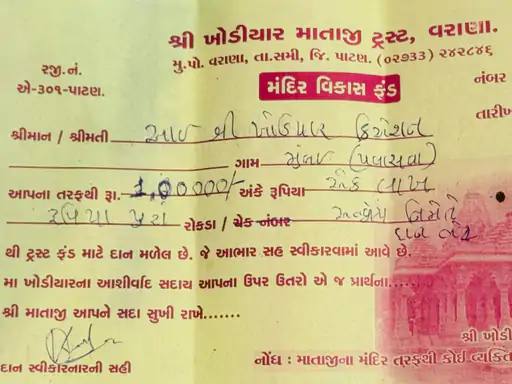 શ્રી ખોડીયાર માતાજી ટ્રસ્ટ, વરાણા.
મુ.પો. વરાણા, તા.સમી, જિ. પાટણ. (૦૨૭૩૩) ૨૪૨૮૪૬
રજી.નં.
એ-૩૦૧-પાટણ.
મંદિર વિકાસ ફંડ
નંબર
તારીખ
શ્રીમાન / શ્રીમતી આઇ શ્રી ખોડિયાર
ગામ મુંબઇ (પલાસવા)
આપના તરફથી રૂા. 1,00000/- અંકે રૂપિયા એક લાખ
રૂપિયા પુરા રોકડા / ચેક નંબર નિમેતે
દાન ભેટ
થી ટ્રસ્ટ ફંડ માટે દાન મળેલ છે. જે આભાર સહ સ્વીકારવામાં આવે છે.
મા ખોડીયારના આશીર્વાદ સદાય આપના ઉપર ઉતરો એ જ પ્રાર્થના.....
શ્રી માતાજી આપને સદા સુખી રાખે.......
શ્રી ખોડી
દાન સ્વીકારનારની સહી
નોંધ : માતાજીના મંદિર તરફથી કોઈ વ્યક્તિ